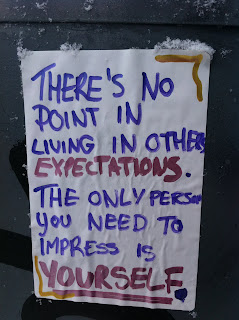 THERE'S NO
POINT IN
LIVING IN OTHERS
EXPECTATIONS.
THE ONLY PERSON
YOU NEED TO
IMPRESS IS
YOURSELF